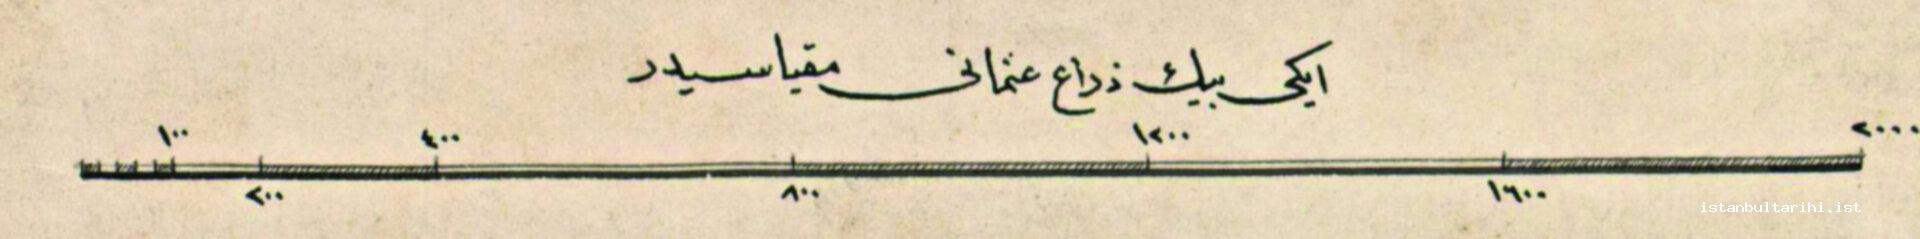 ایكی بیك ذراع عثمانی مقیاسیدر
١٠٠ ٤٠٠ ١٢٠٠ ٢٠٠٠
٢٠٠ ٨٠٠ ١٦٠٠
istanbultarihi.ist